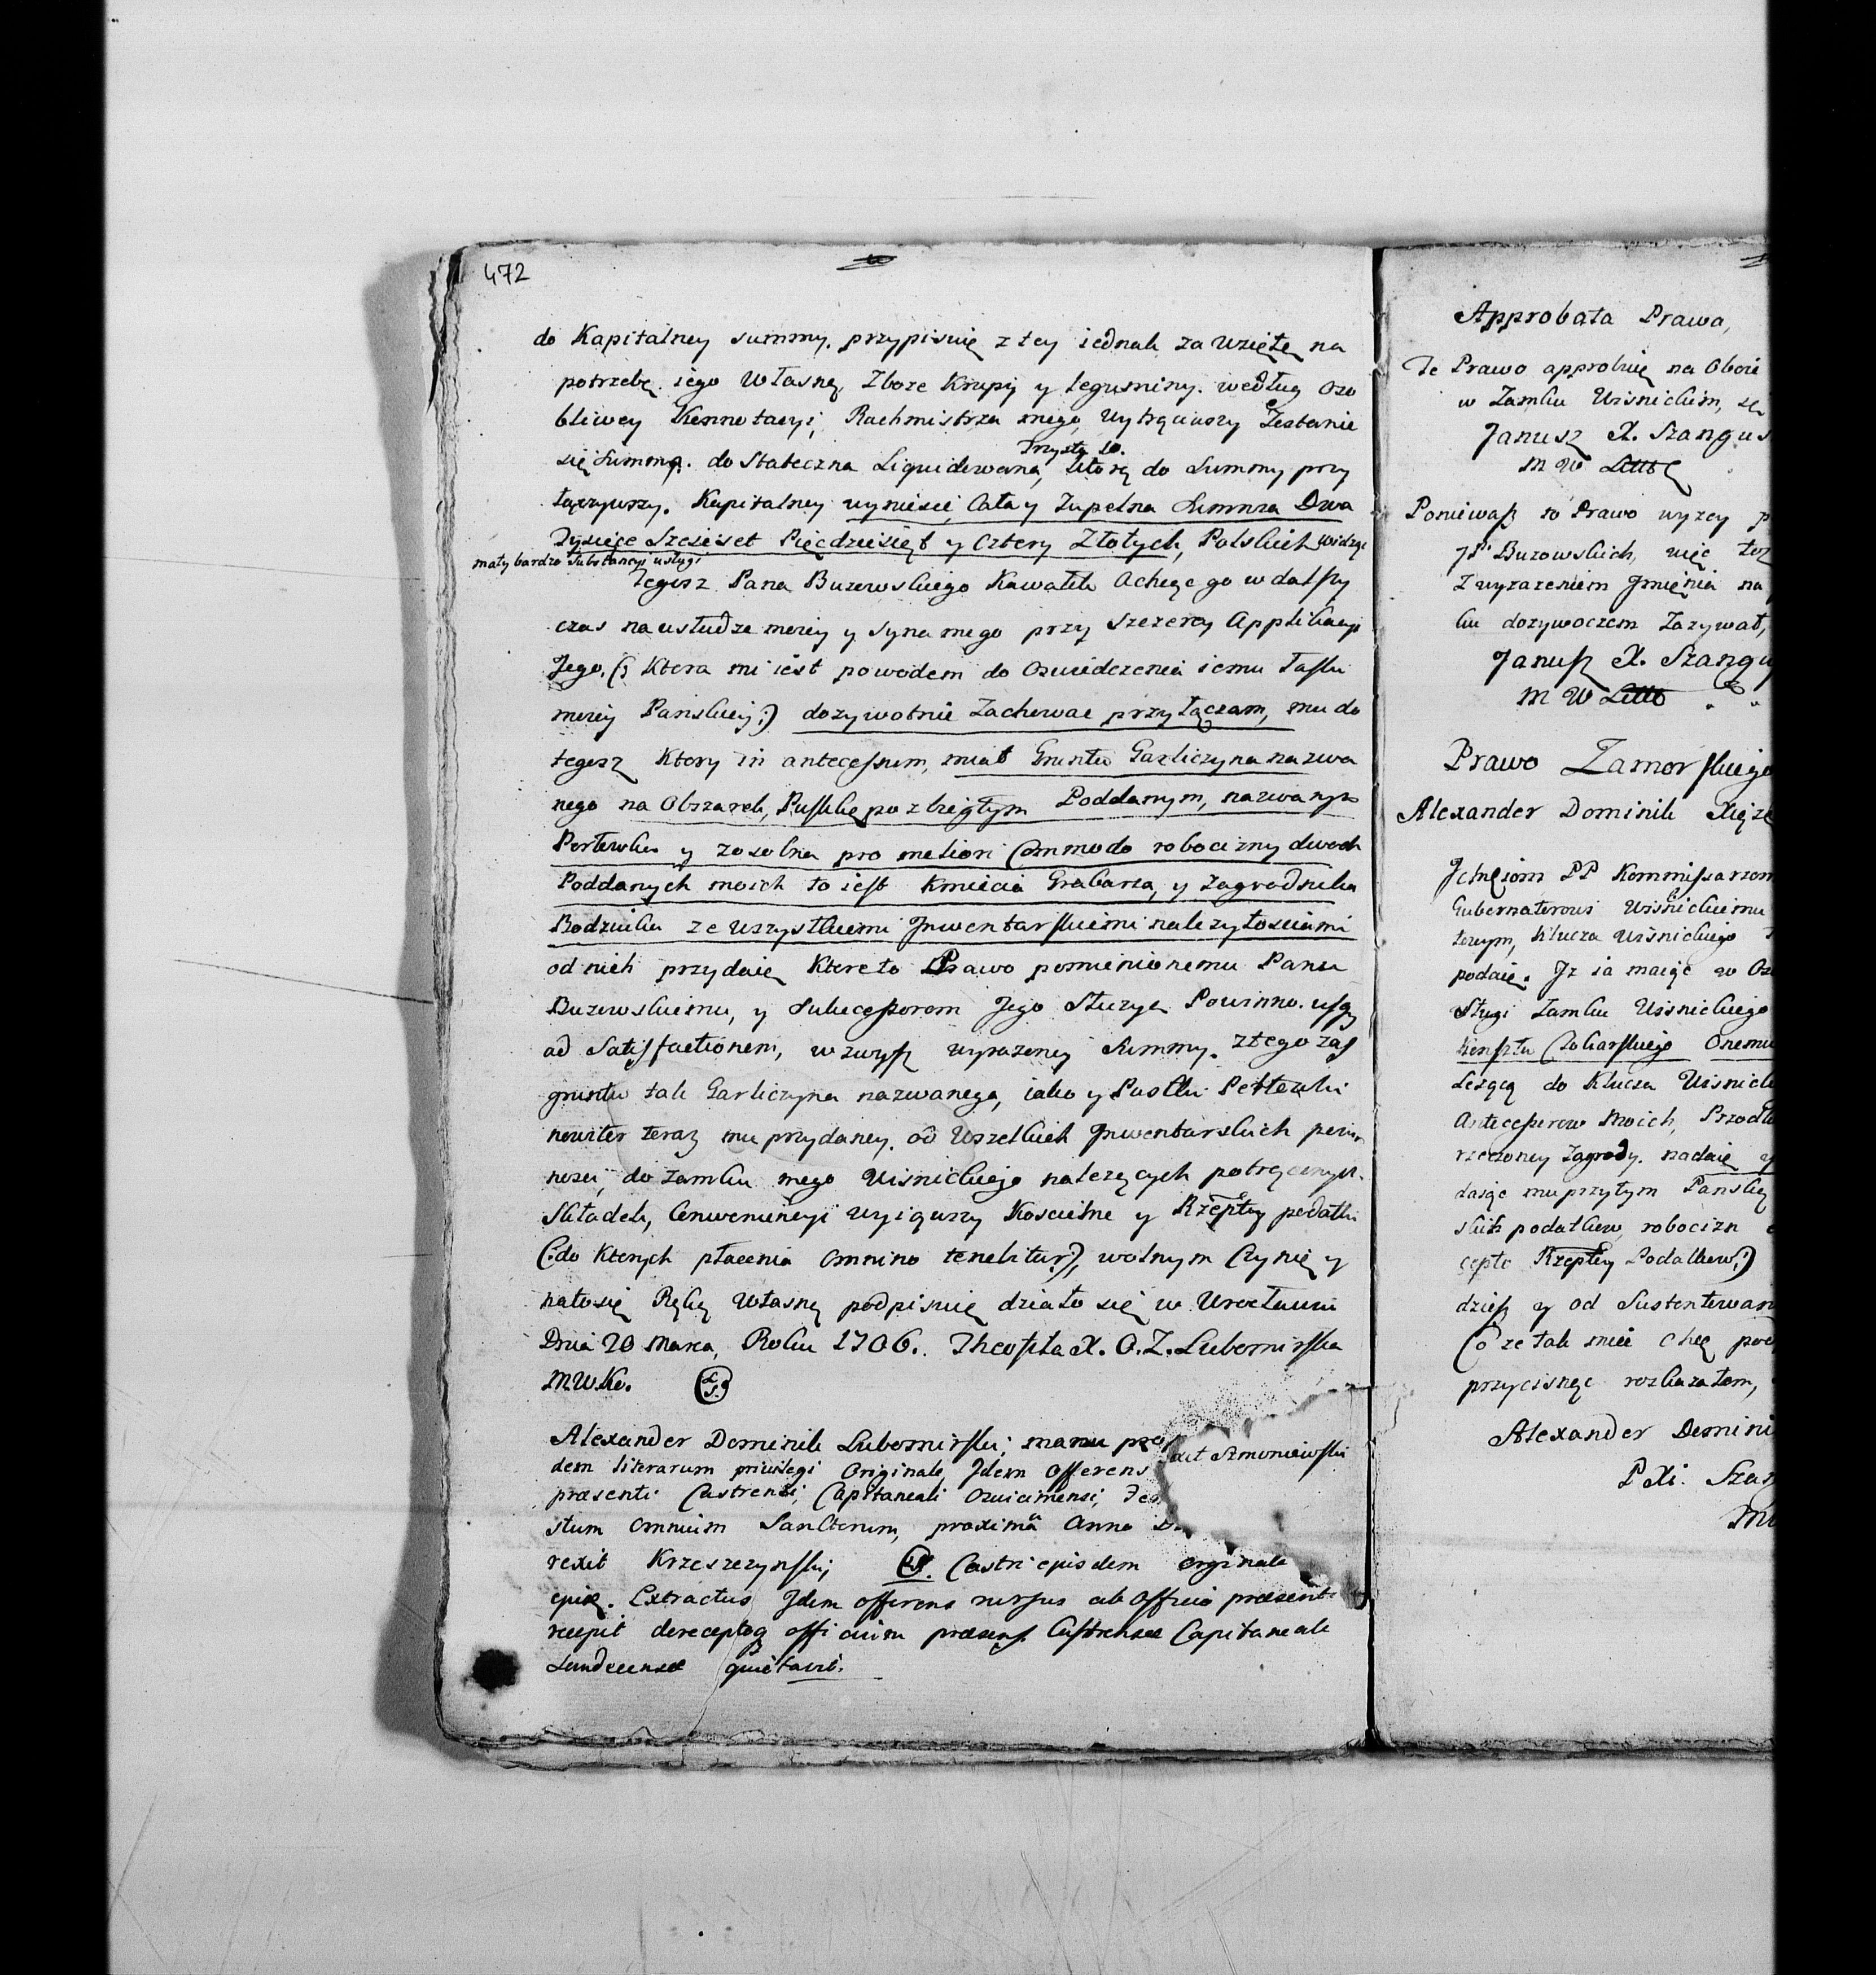 472
do Kapitalney summy. przypisuię z tey iednak za wziętę na
potrzebę iego własną Zboże Krupy y legumíny. według oso
bliwey Konnotacyi, Rachmistrza mego, wytrąciwszy Zostanie
się summa. dostateczna Liquidowana, Trzysta 10. ktorą do Summy przy
łączywszy. Kapitalney wyniesie, Cała y Zupełna Summa Dwa
Tysiące Szesćset Pięcdziesiąt y Cztery Złotych, Polskich widząc
mały bardzo Substancyi usługi
tegosz Pana Buzowskiego Kawałek Achcąc go w dalszy
czas na usłudze moiey y Syna mego przy szczerey Applikacyi
Jego, (: Ktora mi iest powodem do Oswiedczenia iemu Łaski
moiey Panskiey :) dozywotnie Zachowac przyłączam, mu do
tegosz Ktory in antecessum, miał Gruntu Garliczyna nazwa
nego na Obszarek, Puskę po zbiegłym Poddanym, nazwanym
Perłewka y zosobna pro meliori Commodo robocizny dwoch
Poddanych moich to iest Kmiecia Grabarza, y Zagrodnika
Rodziika ze wszystkiemi Jnwentarskiemi nalezytosciami
od nich przydaię Ktore to Prawo pomienionemu Panu
Buzowskiemu, y Sukcessorom Jego Słuzyc Powinno. usq
ad Satisfactionem, wzwysz wyrazoney Summy. z tego zas
gruntu tak Garliczyna nazwanego, iako y Pustki Perłewki
noviter teraz mu przydaney. od Wszelkich Jnwentarskich powin
nosci, do Zamku mego Wisnickiego nalezących potrącenych.
Składek, Conveniencyi wyiąwszy Koscielne y Rzeptey podatki
(:do Ktorych płacenia omnino tenebitur:), wolnym Czynię y
na to się Ręką Własną podpisuię działo się w Wrocławiu
Dnia 20 Marca, Roku 1706. Theofila X. O. Z. Lubomirska
M.W.Ko. L.S.
Alexander Dominik Lubomirski; manu pro
act Szmoniewski
dem literarum priwilegi Originale, Jdem Offerens
præsenti Castrensi, Capitaneali Oswiecimensi,
stum Omnium Sanctorum, proximâ Anno
rexit Krzeszczynski; L.S. Castri ejusdem orginale
ejus. Extractus Jdem offerens rursus ab Officio præsent
recepit dereceptoq officium præsens Castrense Capitaneale
Sandecense quietavit.
Approbata Prawa,
Te Prawo approbuię na Oboie
w Zamku Wisnickim,
Janusz X. Szangus
M W Litto
Poniewasz to Prawo wyzey
JP. Buzowskich, więc toz
Z wyrazeniem Jmienia na
ku dozywoczem Zazywał,
Janusz X. Szangu
M W Litto
Prawo Zamorskiego
Alexander Dominik Xiąze
Jchmciom PP Kommissarzom
Gubernatorowi Wisnickiemu
tozym, Klucza Wisnickiego
podaię. Jz ia maiąc w
sługi Zamku Wisnickiego
Kunsztu Cokarskiego Onemu
Lezącą do Klucza Wisnick
Antecessorow Moich, Przodk
rzeczoney Zagrody. nadaię y
daiąc mu przytym Panską
skich podatkow, robocizn
cepto Rzeptey Podatkow:)
dzies y od Sustentowan
Co ze tak miec Chcę pod
przycisnąc rozkazałem,
Alexander Domini
P Xi. Szaz